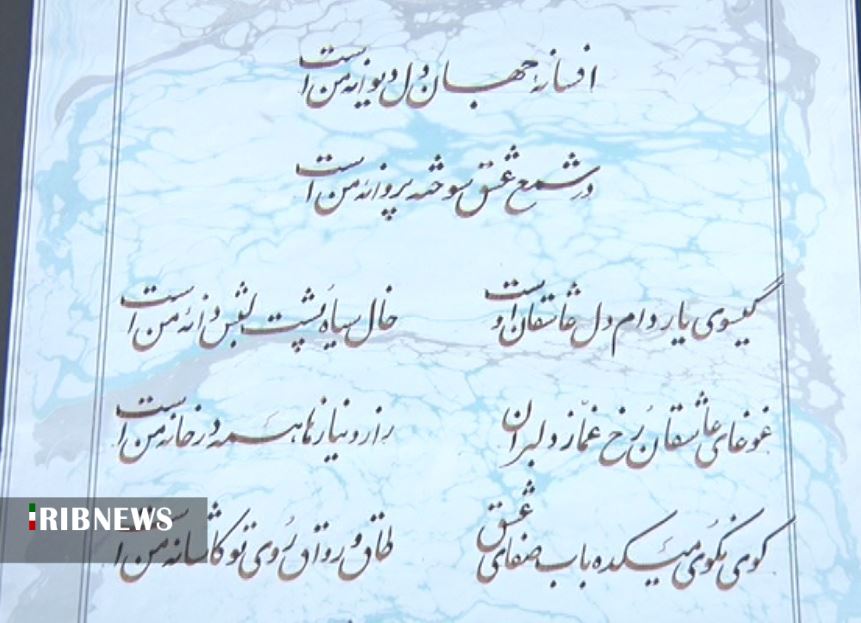 افسانهٔ جهان دل دیوانه من است
در شمع عشق سوخته پروانهٔ من است
گیسوی یار دام دل عاشقان اوست
خال سیاه پشت لبش دانهٔ من است
غوغای عاشقان رُخ غمّاز دلبران
راز و نیازها همه در خانه من است
کوی نکوی میکده باب صفای عشق
طاق و رواق رُوی تو کاشانه من است
IRIBNEWS